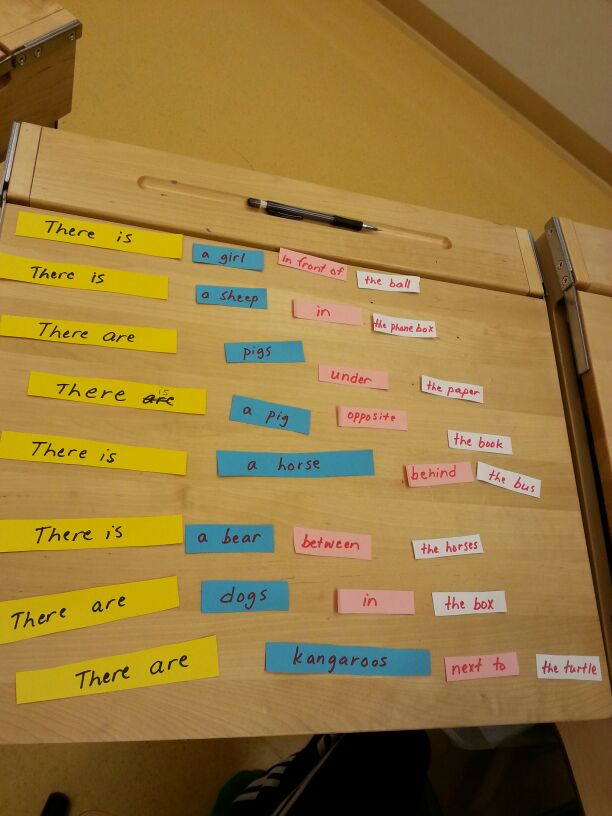 There is a girl in front of the ball
There is a sheep in the phone box
There are pigs under the paper
There are is a pig opposite the book
There is a horse behind the bus
There is a bear between the horses
There are dogs in the box
There are kangaroos next to the turtle